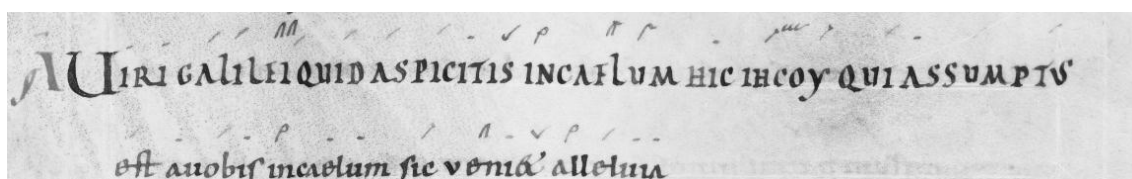 A UIRI GALILEI QUID ASPICITIS IN CAELUM HIC IHCOY QUI ASSUMPTUS
est a uobis in caelum sic veni& alleluia